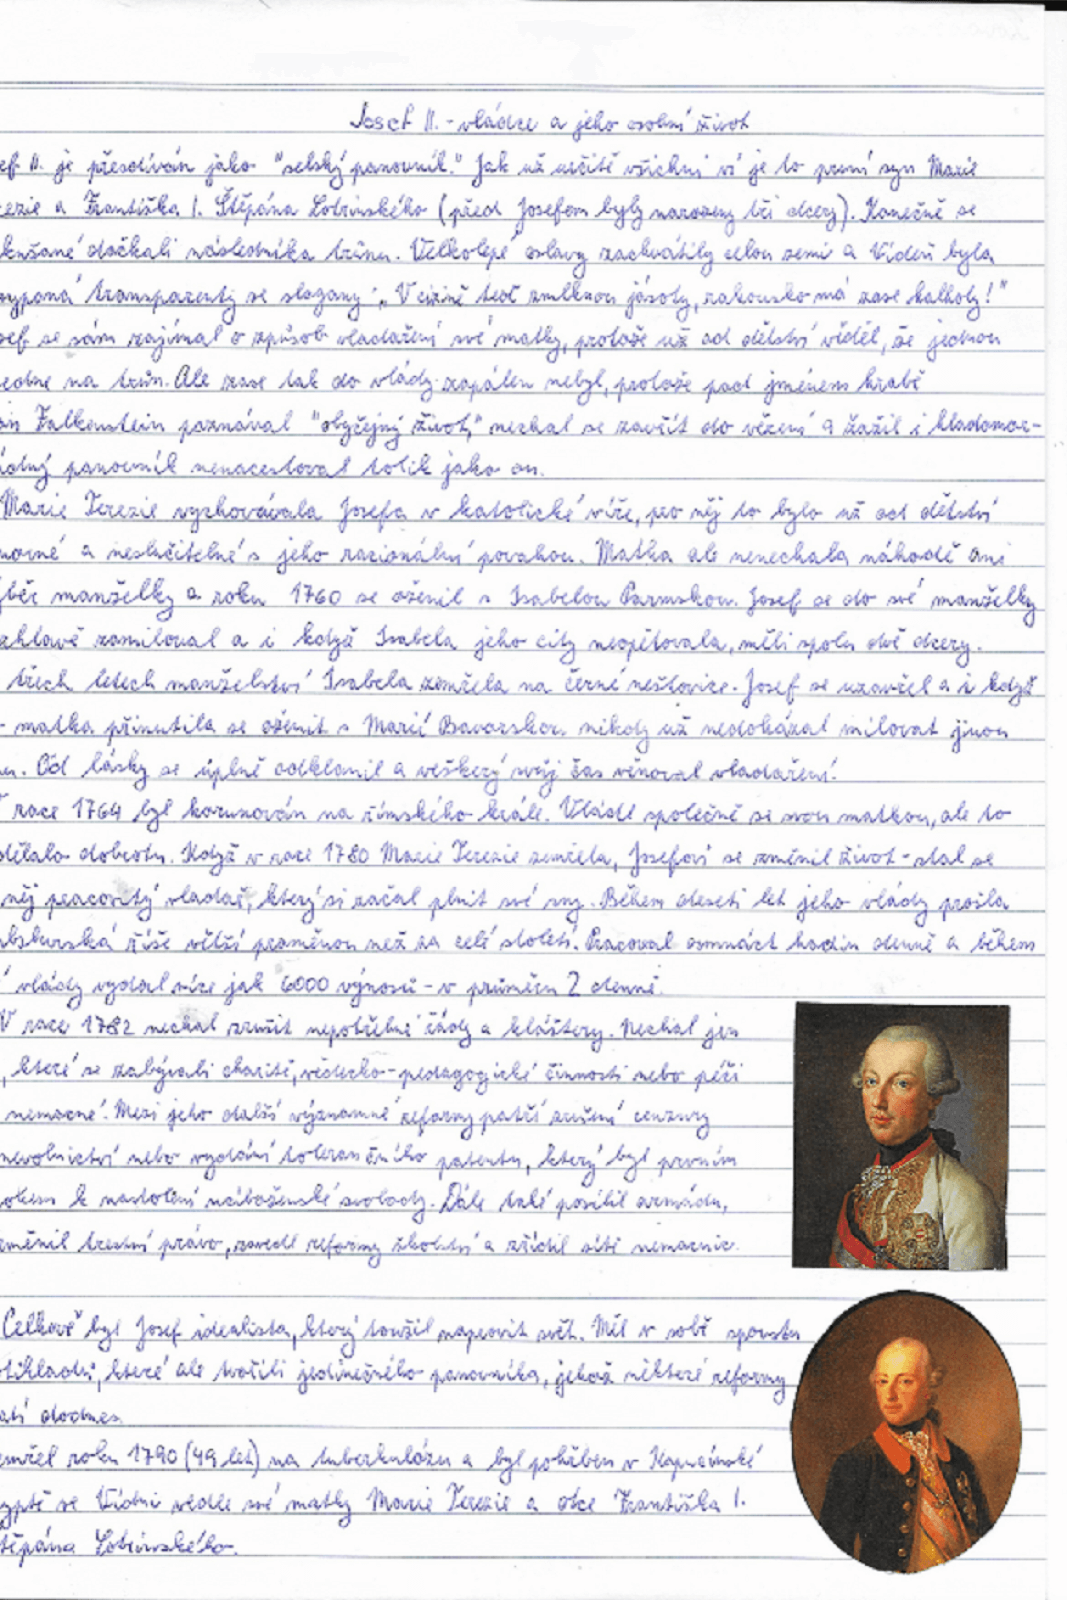 Josef II. - vládce a jeho osobní život
ef II. je přezdíván jako "selský panovník." Jak už určitě všichni ví je to první syn Marie
rezie a Františka I. Štěpána Lotrinského (před Josefem byly narozeny tři dcery). Konečně se
kušané dočkali následníka trůnu. Velkolepé oslavy zachvátily celou zemi a Vídeň byla
sypaná transparenty se slogany: „V cizině teď zmlknou jásoty, rakousko má zase kalhoty!"
sef se sám zajímal o způsob vladaření své matky, protože už od dětství věděl, že jednou
edne na trůn. Ale zase tak do vlády zapálen nebyl, protože pod jménem hrabě
on Falkenstein poznával "obyčejný život," nechal se zavřít do vězení a zažil i hladomor-
ádný panovník nenacestoval tolik jako on.
Marie Terezie vychovávala Josefa v katolické víře, pro něj to bylo už od dětství
novné a neslučitelné s jeho racionální povahou. Matka ale nenechala náhodě ani
ýběr manželky a roku 1760 se oženil s Isabelou Parmskou. Josef se do své manželky
zhlavě zamiloval a i když Isabela jeho city neopětovala, měli spolu dvě dcery.
třech letech manželství Isabela zemřela na černé neštovice. Josef se uzavřel a i když
- matka přinutila se oženit s Marií Bavorskou nikdy už nedokázal milovat jinou
nu. Od lásky se úplně odklonil a veškerý svůj čas věnoval vladaření.
V roce 1764 byl korunován na římského krále. Vládl společně se svou matkou, ale to
dělalo dobrotu. Když v roce 1780 Marie Terezie zemřela, Josefovi se změnil život - stal se
něj pracovitý vladař, který si začal plnit své sny. Během deseti let jeho vlády prošla
absburská říše větší proměnou než za celé století. Pracoval osmnáct hodin denně a během
é vlády vydal více jak 6000 výnosů - v průměru 2 denně.
V roce 1782 nechal zrušit nepotřebné řády a kláštery. Nechal jen
, které se zabývali charitě, vědecko-pedagogické činnosti nebo péči
nemocné. Mezi jeho další významné reformy patří zrušení cenzury
nevolnictví nebo vydání tolerančního patentu, který byl prvním
okem k nastolení náboženské svobody. Dále také posílil armádu,
změnil trestní právo, zavedl reformy školství a zřídil sítě nemocnic.
Celkově byl Josef idealista, který toužil napravit svět. Měl v sobě spoustu
otikladů, které ale tvořili jedinečného panovníka, jehož některé reformy
atí dodnes
emřel roku 1790 (49 let) na tuberkulózu a byl pohřben v Kapucínské
yptě ve Vídni vedle své matky Marie Terezie a otce Františka I.
těpána Lotrinského.